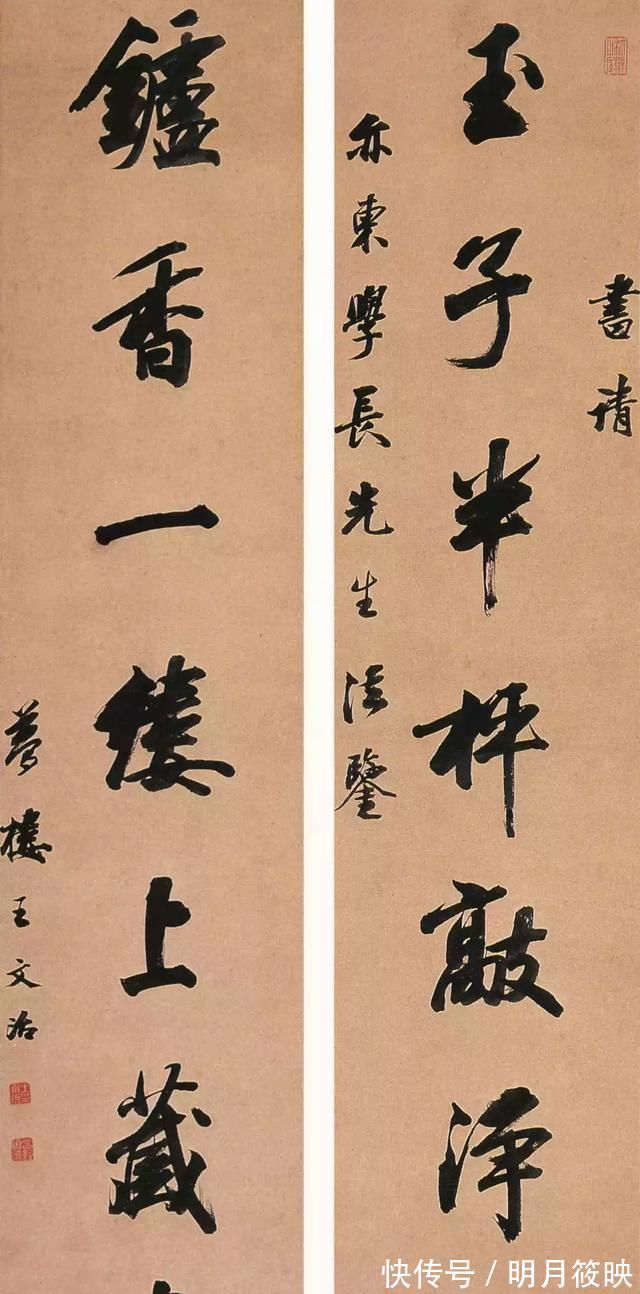 書請
玉子半枰敲淨
亦東學長先生法鑒
鑪香一縷上藏
夢樓王文治
快传号 / 明月筱映